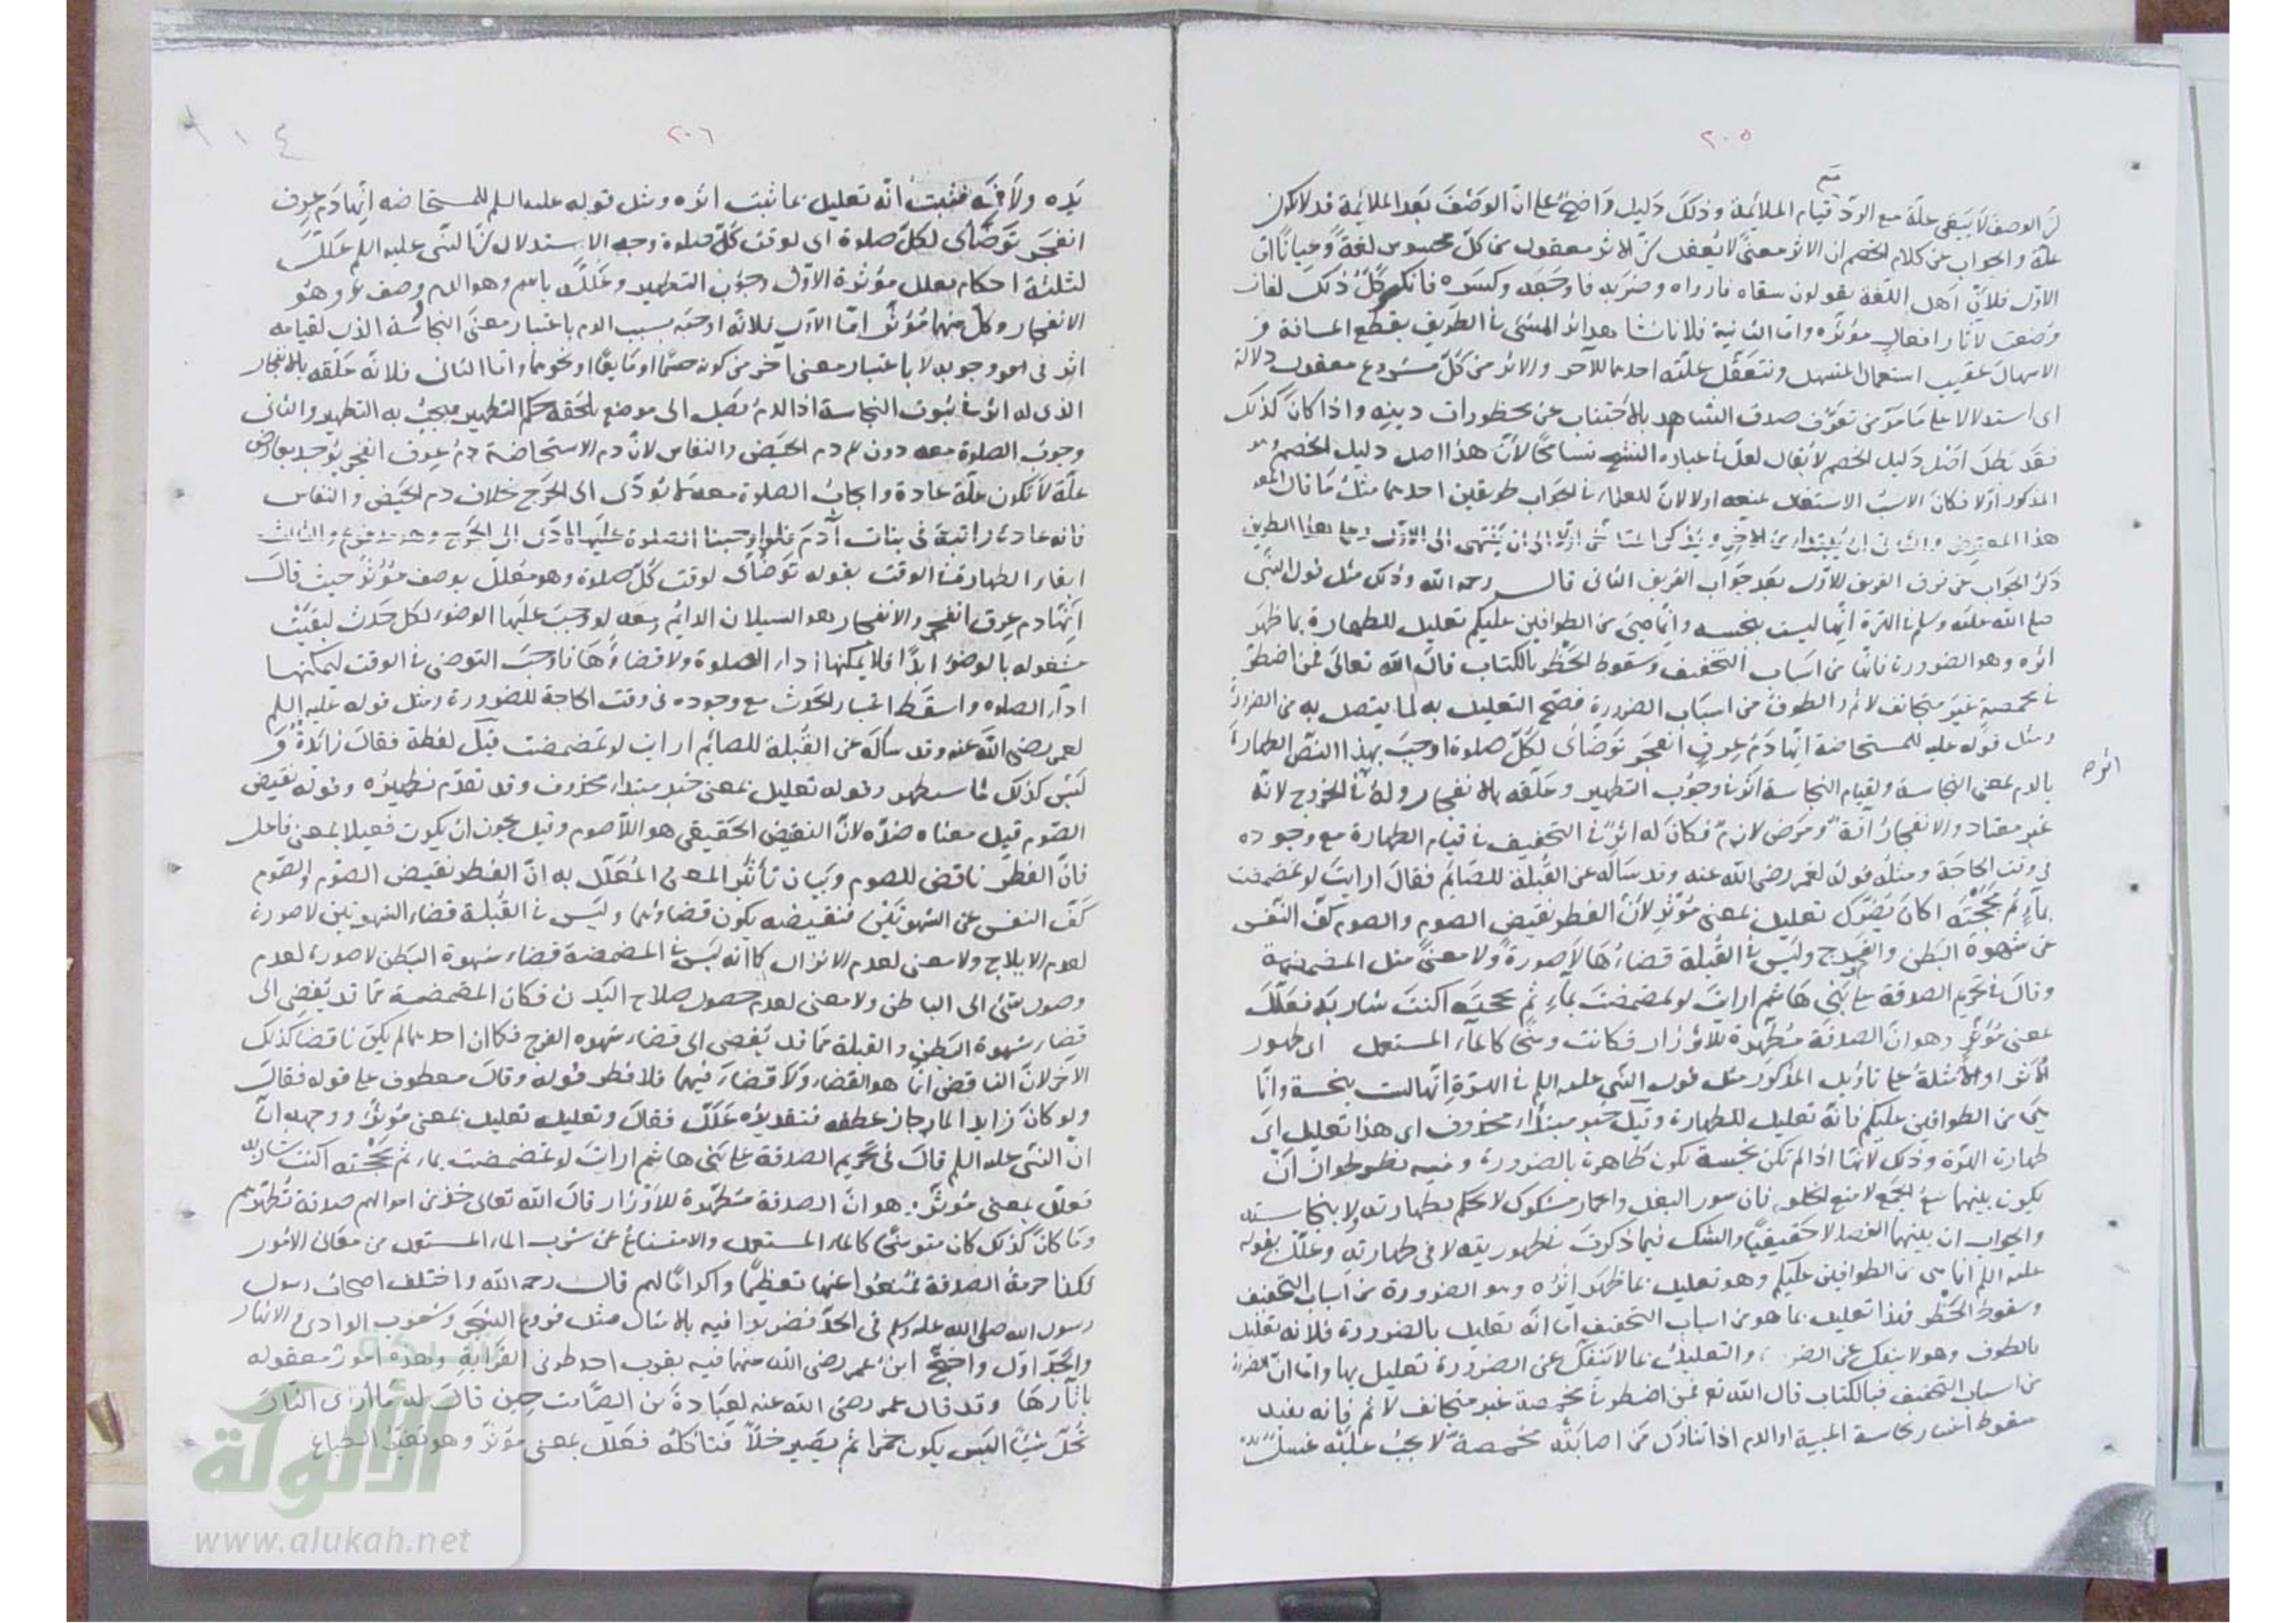 ٢٠٥
لان الوصف لا يبقى علة مع الرد قيام الملائمة وذلك دليل واضح على ان الوصف بعد الملائمة قد لا يكون
علة والجواب عن كلام الخصم ان الاثر معنى لا يعقل لان الاثر معقول من كل محسوس لغة وعيانا اما
الاول فلان اهل اللغة يقولون سقاه فارواه وضربه فاوجعه وكسره فانكسر كل ذلك لغات
وضعت لآثار افعال مؤثره واما الثانية فلانا نشاهد اثر المشي في الطريق بقطع المسافة و
الاسهال عقيب استعمال المسهل ونتعقل علته احدهما للآخر والاثر من كل مشروع معقول دلالة
اى استدلالا على ما مر من تعرف صدق الشاهد بالاجتناب عن محظورات دينه واذا كان كذلك
فقد بطل اصل دليل الخصم لا يقال لعل في عباره الشيخ تسامحا لان هذا اصل دليل الخصم وهو
المذكور اولا فكان الانسب الاشتغال بمنعه اولا لان للعلماء في الجواب طريقين احدهما مثل ما قال
هذا المعترض والثانى ان يبتدأ من الاخر ويذكر
ذكر الجواب عن فرق الفريق الاول بعد جواب الفريق الثانى قال رحمه الله وذلك مثل قول النبى
صلى الله عليه وسلم في الهرة انها ليست بنجسه وانما هى من الطوافين عليكم تعليل للطهارة بما ظهر
اثره وهو الضرورة فانها من اسباب التخفيف وسقوط الحظر بالكتاب قال الله تعالى فمن اضطر
في مخمصة غير متجانف لاثم والطوف من اسباب الضرورة فصح التعليل به لما يتصل به من الضرورة
ومثل قوله عليه للمستحاضة انها دم عرق انفجر توضأى لكل صلوة اوجب بهذا النص الطهارة
بالدم لمعنى النجاسة ولقيام النجاسة اثر في وجوب التطهير وعلقه بالانفجار وله في الخروج لانه
غير معتاد والانفجار آفة ومرض لازم فكان له اثر في التخفيف في قيام الطهارة مع وجوده
فى وقت الحاجة ومثله قوله لعمر رضى الله عنه وقد سأله عن القبلة للصائم فقال ارايت لو تمضمضت
بماء ثم مججته اكان يضرك تعليل بمعنى مؤثر لان الفطر نقيض الصوم والصوم كف النفس
عن شهوة البطن والفرج وليس في القبلة قضاءها لا صورة ولا معنى مثل المضمضة
وقال في تحريم الصدقة على بني هاشم ارايت لو تمضمضت بماء ثم مججته اكنت شاربه فعلل
بمعنى مؤثر وهو ان الصدقة مطهرة للاوزار فكانت وسخا كالماء المستعمل اى ظهور
الاثر او الامثلة على تاويل المذكور مثل قول النبي عليه السلم في الهرة انها ليست بنجسة وانما
هى من الطوافين عليكم فانه تعليل للطهارة وقيل خبر مبتداء محذوف اى هذا تعليل اى
طهارة الهرة وذلك لانها اذا لم تكن نجسة تكون طاهرة بالضرورة وفيه نظر لجواز ان
يكون بينهما منع الجمع لا منع الخلو فان سور البغل والحمار مشكوك لا حكم بطهارته ولا بنجاسته
والجواب ان بينهما انفصالا حقيقيا والشك فيما ذكرت في طهوريته لا فى طهارته وعلل بقوله
عليه السلم انما هى من الطوافين عليكم وهو تعليل بما ظهر اثره وهو الضرورة من اسباب التخفيف
وسقوط الحظر فهذا تعليل بما هو من اسباب التخفيف اما انه تعليل بالضرورة فلانه تعليل
بالطوف وهو لا ينفك عن الضر والتعليل بما لا ينفك عن الضرورة تعليل بها واما ان الضرورة
من اسباب التخفيف فبالكتاب قال الله تع فمن اضطر في مخمصة غير متجانف لاثم فانه يفيد
سقوط اعتبار نجاسة الميتة او الدم اذا تناول من اصابته مخمصة لا يجب عليه غسل
اثر صح
٢٠٦
يده ولا فمه فثبت انه تعليل بما ثبت اثره ومثل قوله عليه السلم للمستحاضه انها دم عرق
انفجر توضأى لكل صلوة اى لوقت كل صلوة وجه الاستدلال ان النبي عليه السلم علل
لثلثة احكام بعلل مؤثرة الاول وجوب التطهير وعلله بالدم وهو الدم وصف وهو
الانفجار وكل منهما مؤثر اما الاول فلانه اوجبه بسبب الدم باعتبار معنى النجاسة الذى لقيامه
اثر فى وجوبه لا باعتبار معنى آخر من كونه جسما او مايعا او نحوهما واما الثانى فلانه علقه بالانفجار
الذى له اثر في ثبوت النجاسة اذ الدم يصل الى موضع يلحقه حكم التطهير فيجب به التطهير والثانى
وجوب الصلوة معه دون دم الحيض والنفاس لان دم الاستحاضة دم عرق انفجر يوجد بعارض
علة لا تكون علة عادة وايجاب الصلوة معه لا يؤدى الى الحرج بخلاف دم الحيض والنفاس
فانه عادة راتبة فى بنات آدم فلو اوجبنا الصلوة عليها لادى الى الحرج وهو مدفوع والثالث
ابقاء الطهارة في الوقت بقوله توضأى لوقت كل صلوة وهو معلل بوصف مؤثر حيث قال
انها دم عرق انفجر والانفجار هو السيلان الدائم ومعه لو وجب عليها الوضوء لكل حدث لبقيت
مشغولة بالوضوء ابدا فلا يمكنها اداء الصلوة ولا قضاؤها فاوجب التوضى في الوقت ليمكنها
اداء الصلوه واسقط اعتبار الحدث مع وجوده فى وقت الحاجة للضرورة ومثل قوله عليه السلم
لعمر رضى الله عنه وقد سأله عن القبلة للصائم ارايت لو تمضمضت قيل لفظة فقال زائدة و
ليس كذلك لما سيظهر وقوله تعليل بمعنى خبر مبتداء محذوف وقد تقدم نظيره وقوله نقيض
الصوم قيل معناه ضده لان النقيض الحقيقي هو اللاصوم وقيل يجوز ان يكون فعيلا بمعنى فاعل
فان الفطر ناقض للصوم وبيان تأثير المعنى المعلل به ان الفطر نقيض الصوم والصوم
كف النفس عن الشهوتين فنقيضه يكون قضاؤهما وليس في القبلة قضاء الشهوتين لا صورة
لعدم الايلاج ولا معنى لعدم الانزال كما انه ليس في المضمضة قضاء شهوة البطن لا صورة لعدم
وصول شئ الى الباطن ولا معنى لعدم حصول صلاح البدن فكان المضمضة مما قد يفضى الى
قضاء شهوة البطن والقبلة مما قد يفضى الى قضاء شهوه الفرج فكما ان احدهما لم يكن ناقضا كذلك
الآخر لان الناقض انما هو القضاء ولا قضاء فيهما فلا فطر قوله وقال معطوف على قوله فقال
ولو كان زايدا لما جاز عطفه فتقديره علل فقال وتعليله تعليل بمعنى مؤثر ووجهه ان
ان النبى عليه السلم قال فى تحريم الصدقة على بنى هاشم ارايت لو تمضمضت بماء ثم مججته اكنت شاربه
فعلل بمعنى مؤثر وهو ان الصدقة مطهرة للاوزار قال الله تعالى خذ من اموالهم صدقة تطهرهم
وما كان كذلك كان متوسخا كالماء المستعمل والامتناع عن شرب الماء المستعمل من معالى الامور
فكذا حرمة الصدقة تعظيما واكراما لهم قال رحمه الله واختلف اصحاب رسول
رسول الله صلى الله عليه وسلم فى الجد فضربوا فيه بالامثال مثل فروع الشجر وشعوب الوادى والانهار
والجد اول واحتج ابن عمر رضى الله عنهما فيه بقرب احد طرفى القرابة وهذه امور معقوله
بآثارها وقد قال عمر رضى الله عنه لعبادة بن الصامت حين قال له ما ارى النار
تحل شيئا اليس يكون خمرا ثم يصير خلا فتأكله فعلل بمعنى مؤثر وهو تغير الطباع
شبكة
الألوكة
www.alukah.net